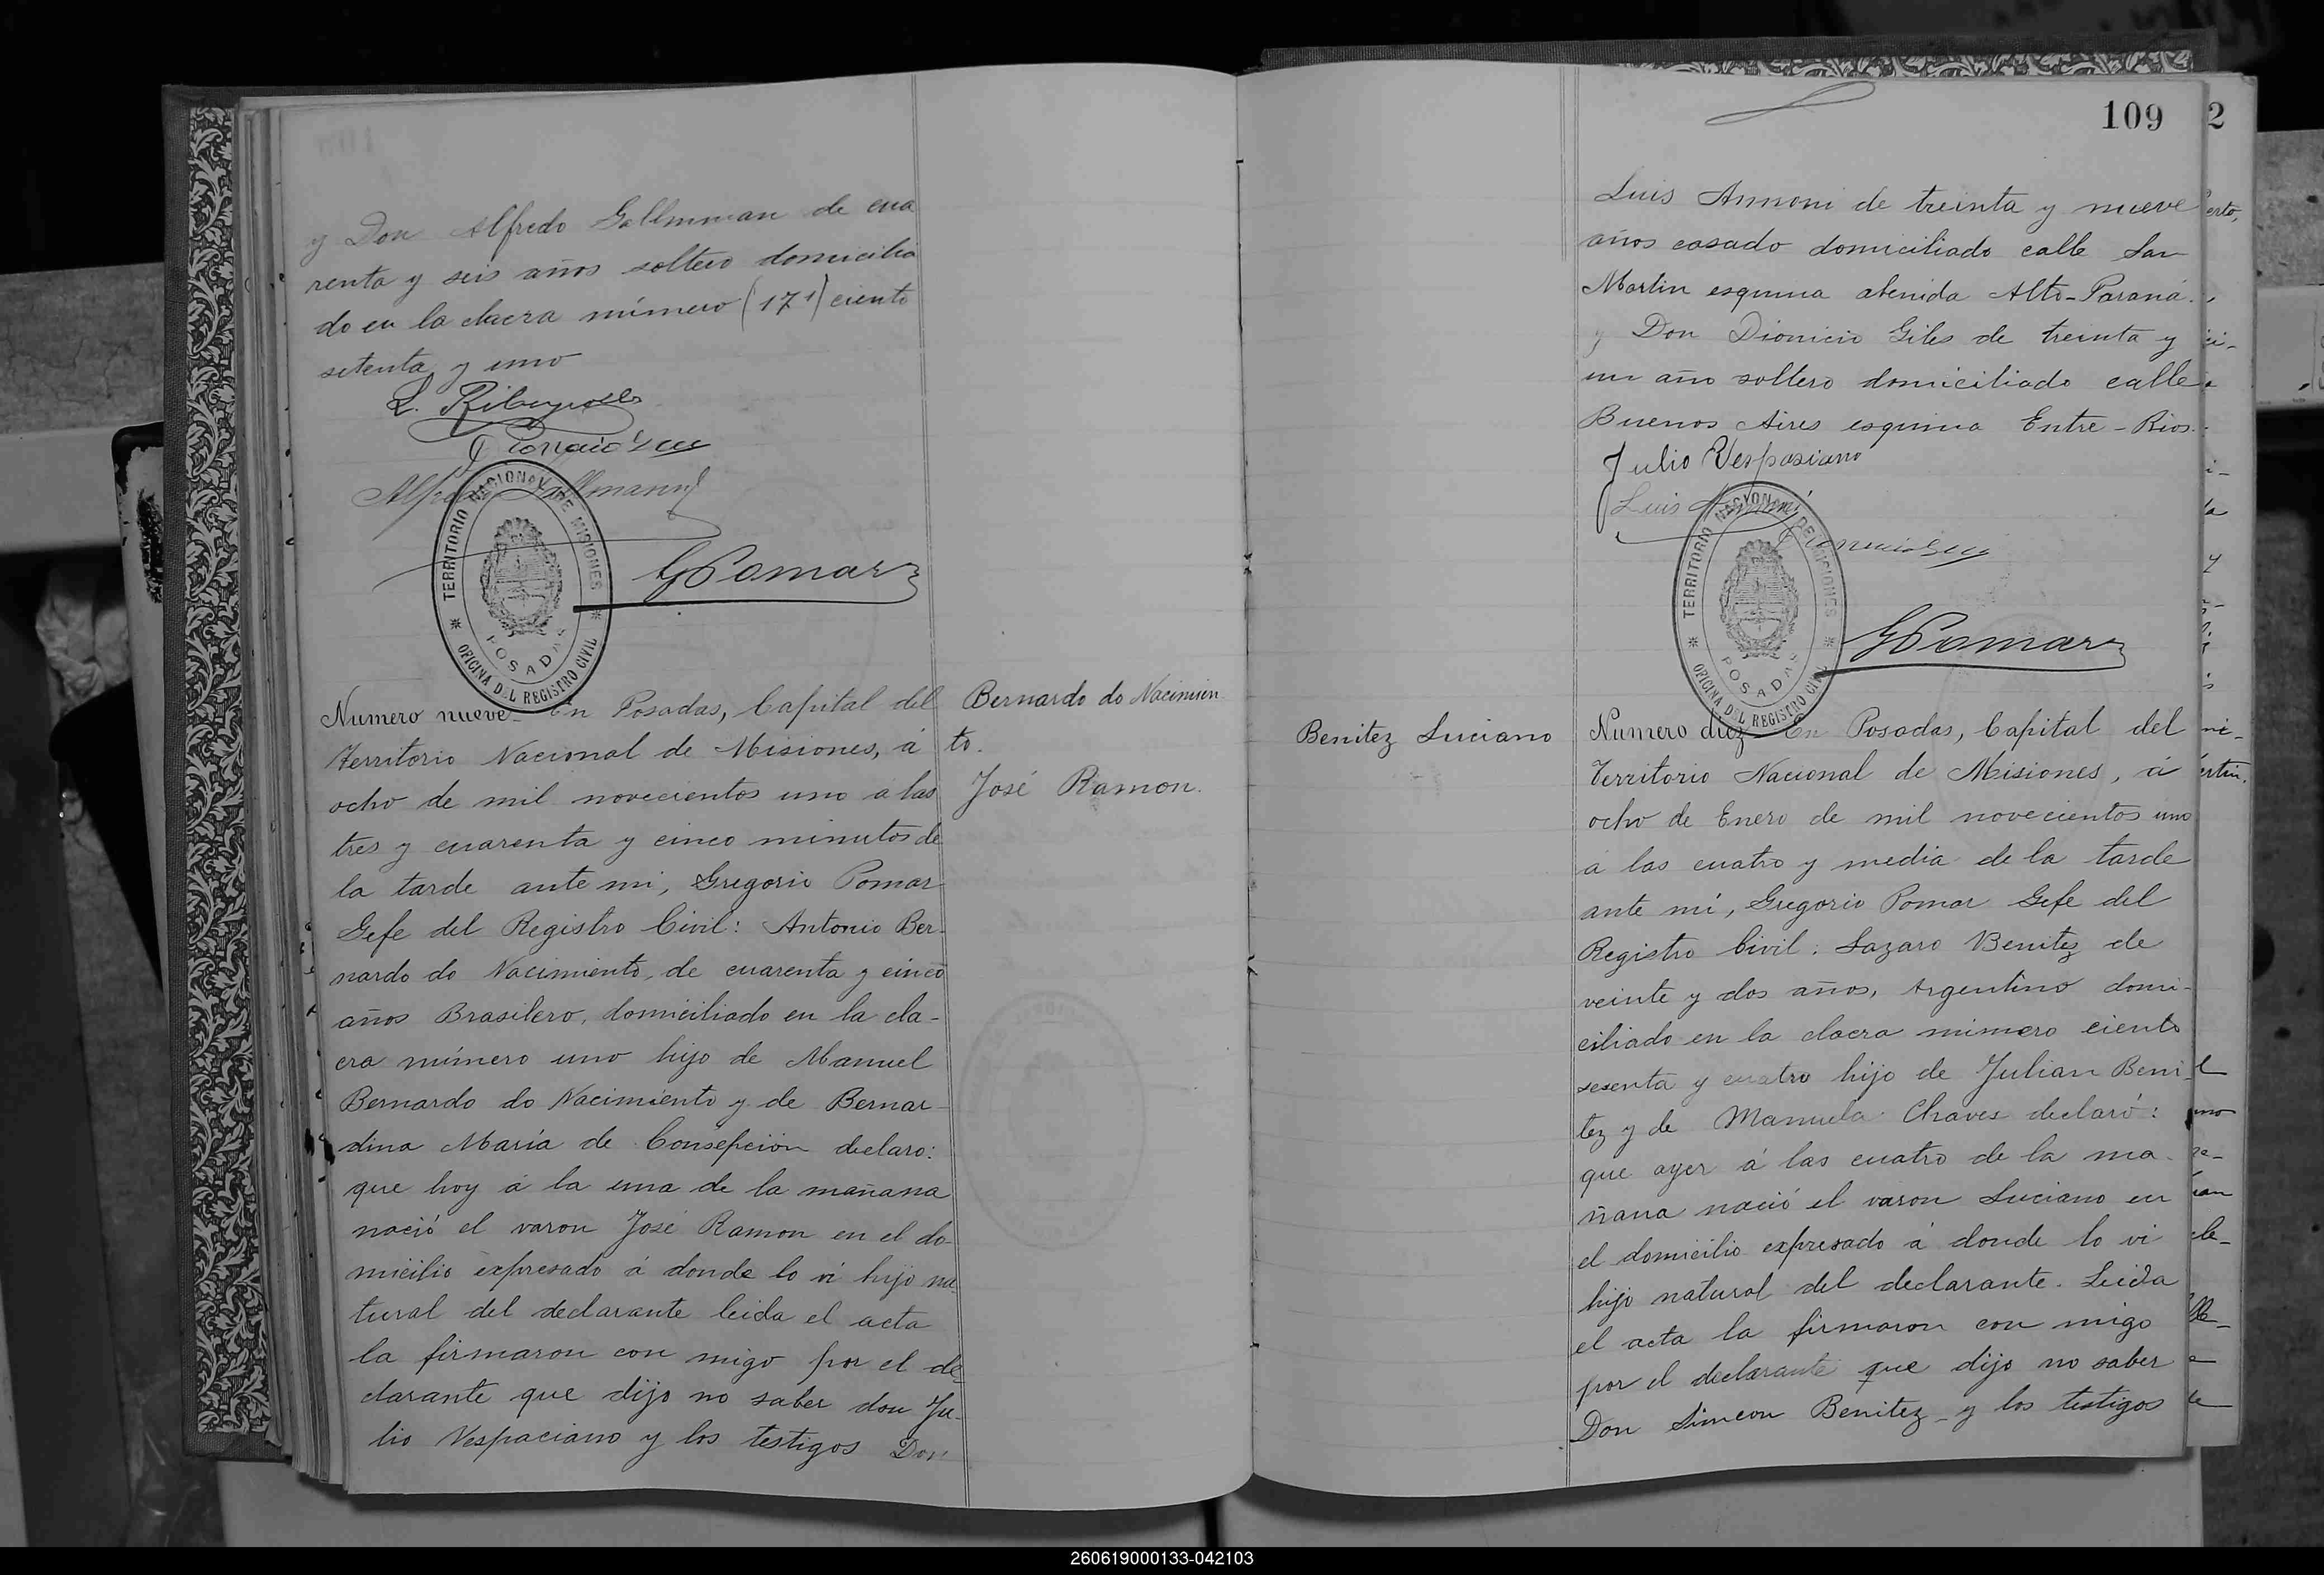 y Don Alfredo Gallmman de cua
renta y seis años soltero domicilia
do en la chacra número (171) ciento
setenta y uno
Alfredo Gallmann
TERRITORIO NACIONAL DE MISIONES
POSADAS
OFICINA DEL REGISTRO CIVIL
GPomar
Numero nueve - En Posadas, Capital del
Territorio Nacional de Misiones, á
ocho de mil novecientos uno a las
tres y cuarenta y cinco minutos de
la tarde ante mi, Gregorio Pomar
Gefe del Registro Civil: Antonio Ber-
nardo do Nacimiento, de cuarenta y cinco
años Brasilero, domiciliado en la cha-
cra número uno hijo de Manuel
Bernardo do Nacimiento y de Bernar-
dina María de Consepción declaro:
que hoy á la una de la mañana
nació el varon José Ramon en el do-
micilio expresado á donde lo ví hijo na-
tural del declarante leida el acta
la firmaron con migo por el de-
clarante que dijo no saber don Ju-
lio Vespaciano y los testigos Don
Bernardo do Nacimien
to.
José Ramon.
109
Luis Annoni de treinta y nueve
años casado domiciliado calle San
Martin esquina abenida Alto-Paraná.
y Don Dionicio Giles de treinta y
un año soltero domiciliado calle
Buenos Aires esquina Entre-Rios.
Julio Vespasiano
Luis Annoni
TERRITORIO NACIONAL DE MISIONES
POSADAS
OFICINA DEL REGISTRO CIVIL
GPomar
Benitez Luciano
Numero diez - En Posadas, Capital del
Territorio Nacional de Misiones, á
ocho de Enero de mil novecientos uno
á las cuatro y media de la tarde
ante mí, Gregorio Pomar Gefe del
Registro Civil: Lazaro Benitez de
veinte y dos años, Argentino domi-
ciliado en la chacra número ciento
sesenta y cuatro hijo de Julian Beni-
tez y de Manuela Chaves declaró:
que ayer á las cuatro de la ma-
ñana nació el varon Luciano en
el domicilio expresado á donde lo ví
hijo natural del declarante. Leida
el acta la firmaron con migo
por el declarante que dijo no saber
Don Simeon Benitez - y los testigos
2
260619000133-042103